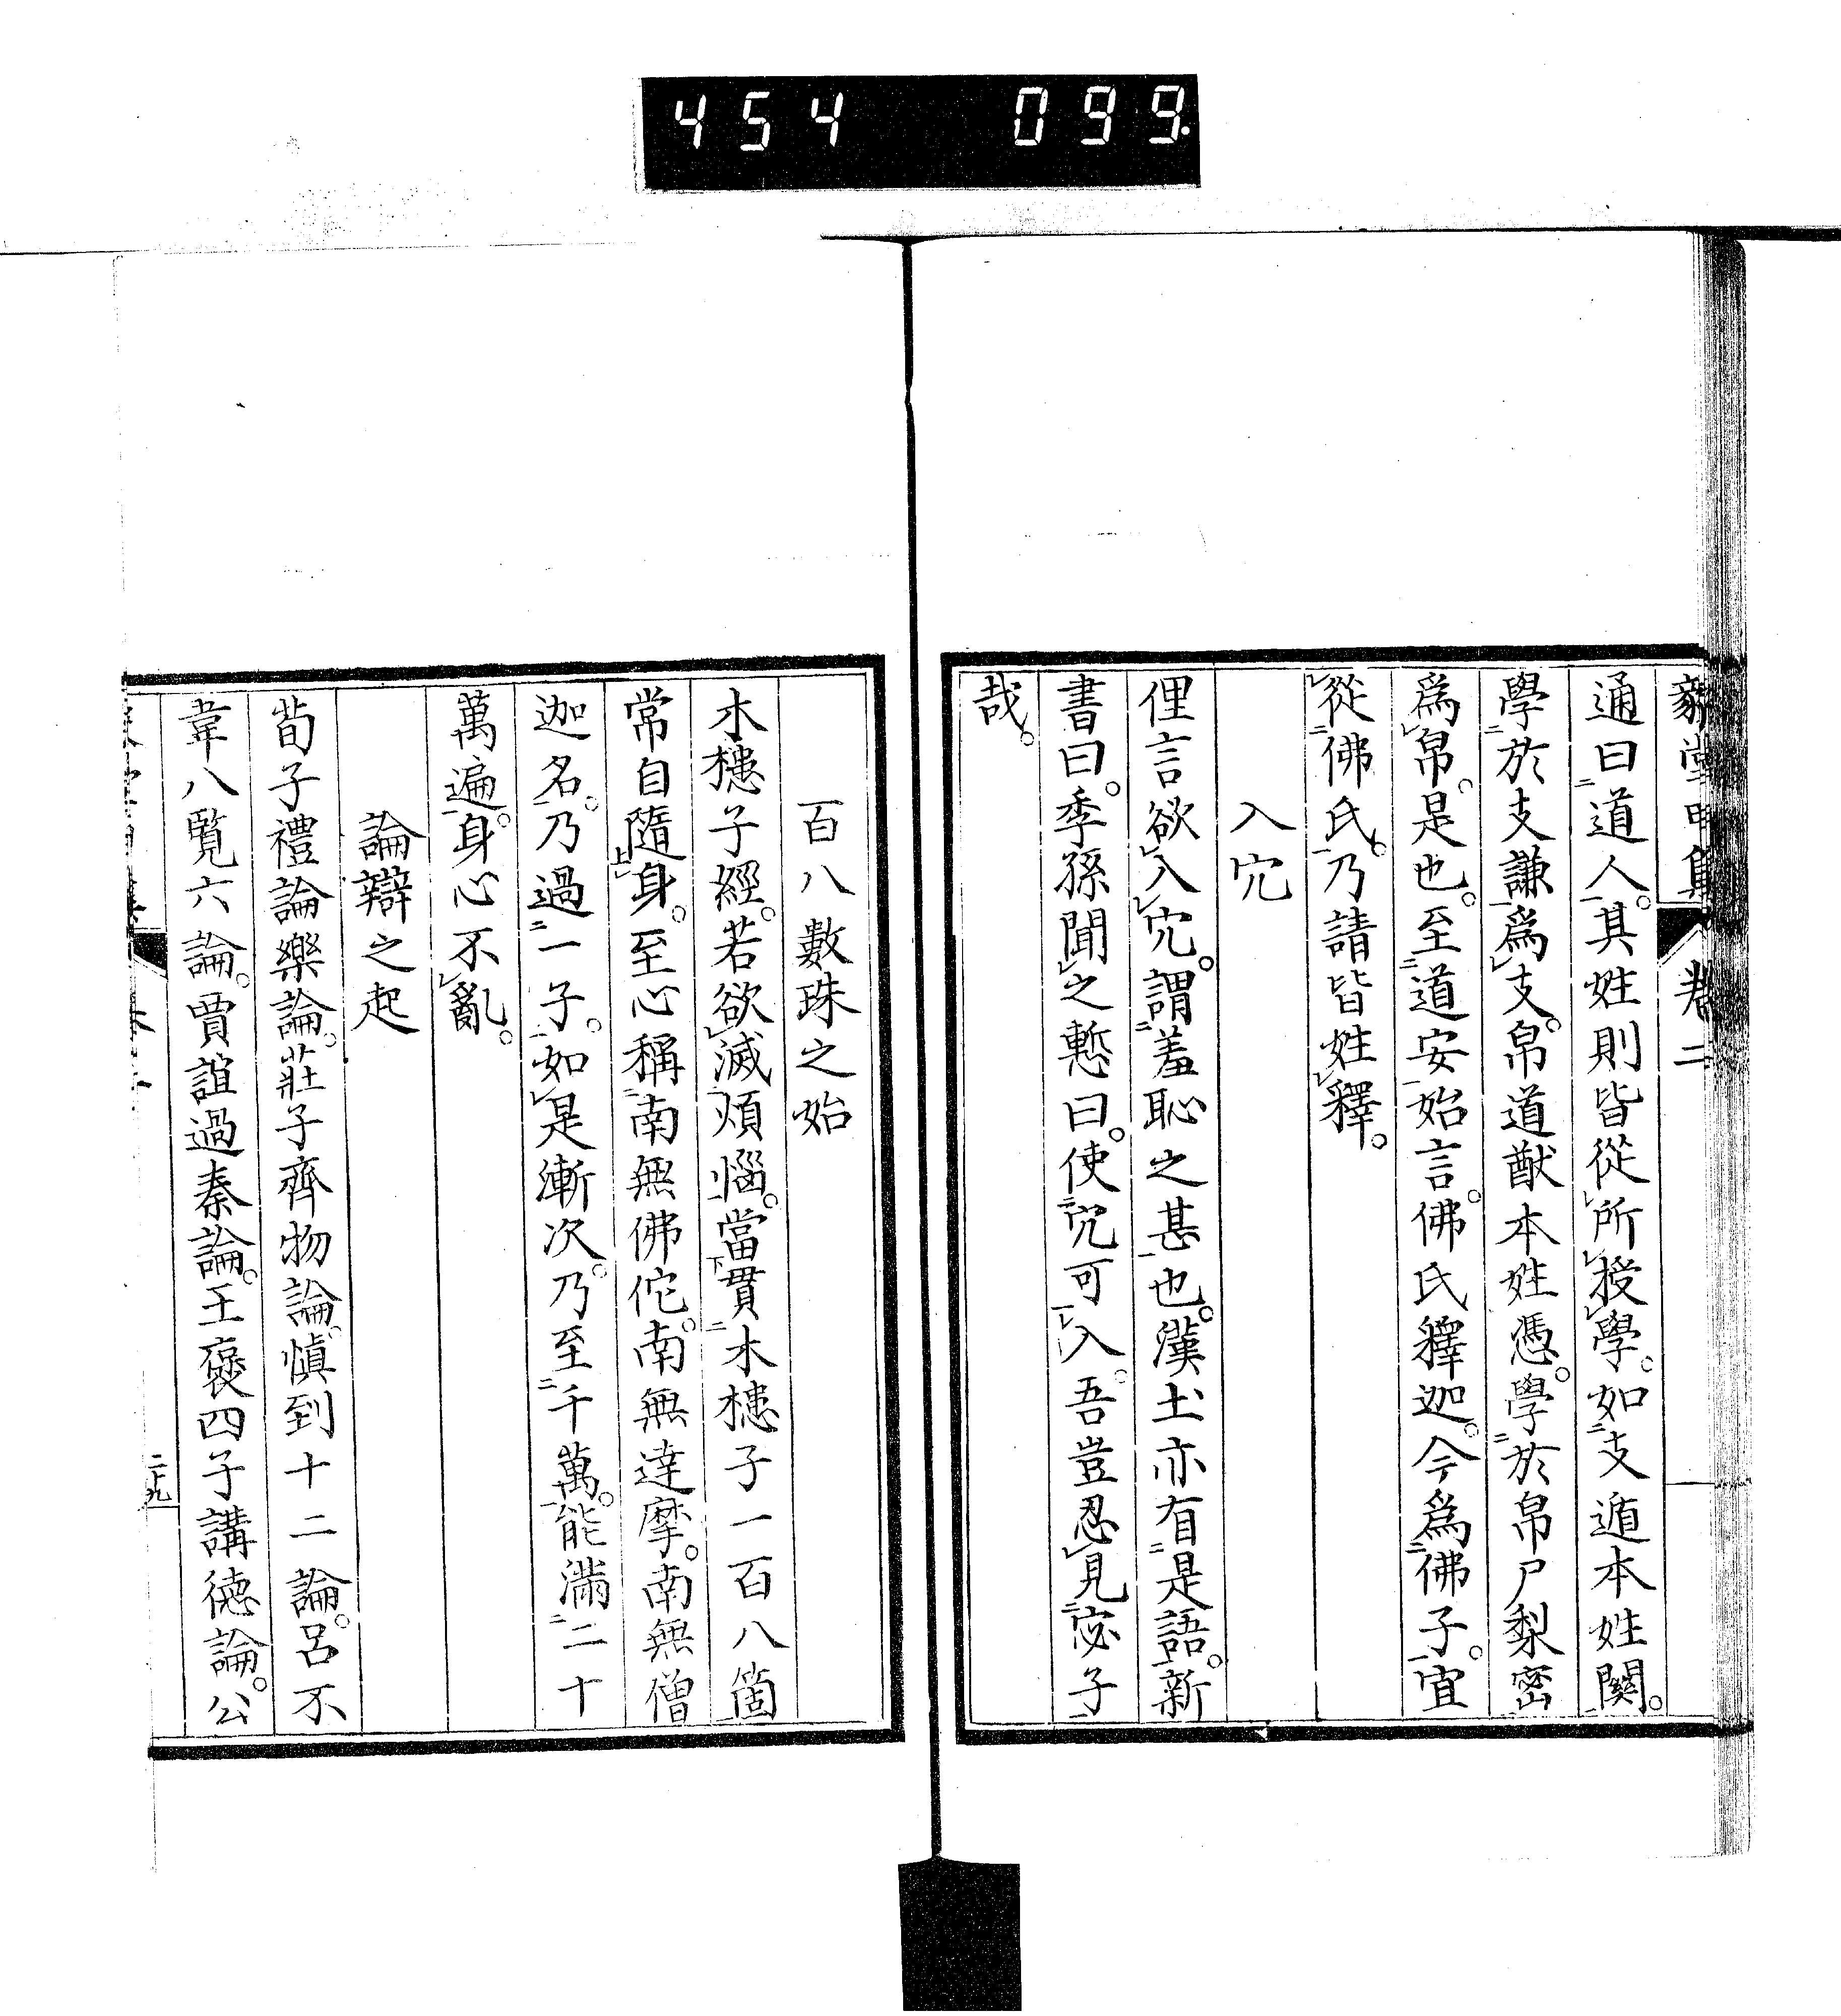 454 099
通曰道人其姓則皆從所授學。如支遁本姓關。
學於支謙爲支。帛道猷本姓馮。學於帛尸梨密
爲帛。是也。至道安始言。佛氏釋迦。今爲佛子。宜
從佛氏。乃請皆姓釋。
入穴
俚言欲入穴。謂羞恥之甚也。漢土亦有是語。新
書曰。季孫聞之慙曰。使穴可入。吾豈忍見宓子
哉。
百八數珠之始
木槵子經。若欲滅煩惱。當貫木槵子一百八箇
常自隨身。至心稱南無佛佗。南無達摩。南無僧
迦名。乃過一子。如是漸次。乃至千萬。能滿二十
萬遍。身心不亂。
論辯之起
荀子禮論樂論。莊子齊物論。愼到十二論。呂不
韋八覽六論。賈誼過秦論。王褒四子講德論。公
二十九